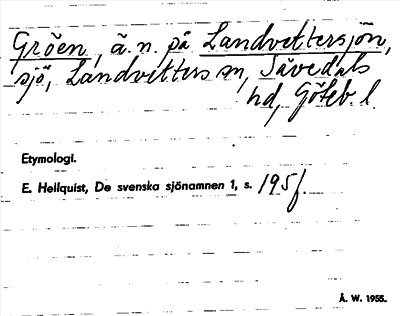 Gröen, ä.n. på Landvettersjön,
sjö, Landvetters sn, Sävedals
hd, Göteb. l.
Etymologi.
E. Hellquist, De svenska sjönamnen 1, s. 195 f.
Å. W. 1955.